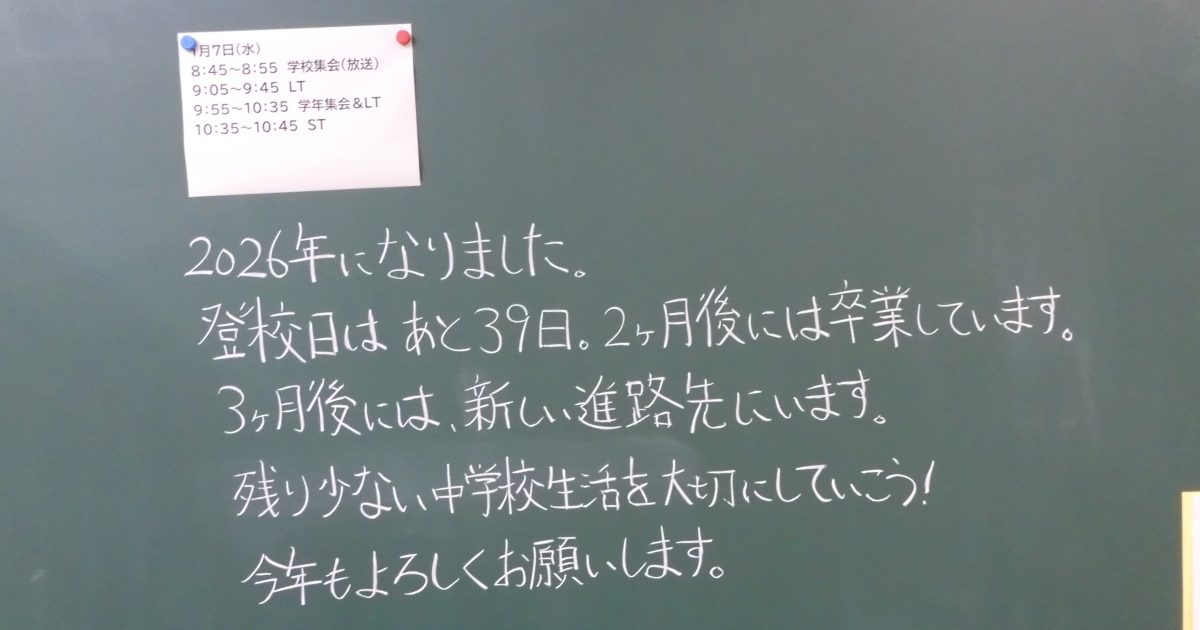 1月7日(水)
8:45～8:55 学校集会(放送)
9:05～9:45 LT
9:55～10:35 学年集会&LT
10:35～10:45 ST
2026年になりました。
登校日は あと39日。2ヶ月後には卒業しています。
3ヶ月後には、新しい進路先にいます。
残り少ない中学校生活を大切にしていこう!
今年もよろしくお願いします。